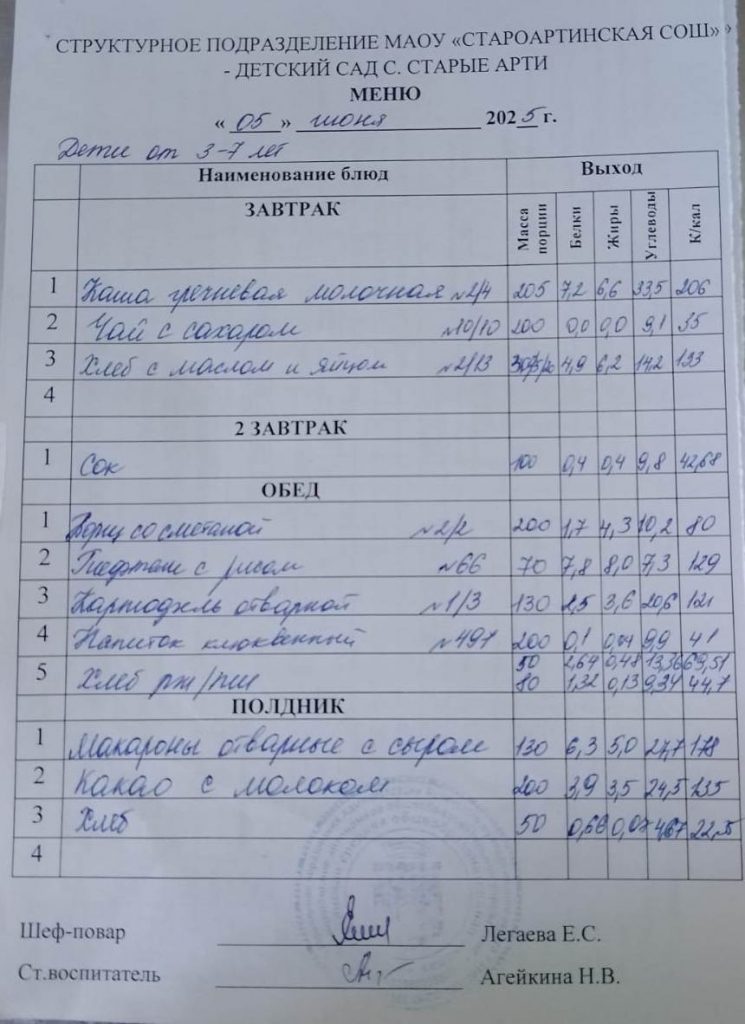 СТРУКТУРНОЕ ПОДРАЗДЕЛЕНИЕ МАОУ «СТАРОАРТИНСКАЯ СОШ»
- ДЕТСКИЙ САД С. СТАРЫЕ АРТИ
МЕНЮ
« 05 » июня 2025 г.
Дети от 3-7 лет
Наименование блюд Выход
ЗАВТРАК Масса порции Белки Жиры Углеводы К/кал
1 Каша гречневая молочная №2/4 205 7,2 6,6 33,5 206
2 Чай с сахаром №10/10 200 0,0 0,0 9,1 35
3 Хлеб с маслом и яйцом №2/13 4,9 6,2 14,2 133
4
2 ЗАВТРАК
1 Сок 100 0,4 0,4 9,8 42,68
ОБЕД
1 Борщ со сметаной №2/2 200 1,7 4,3 10,2 80
2 с рисом №66 70 7,8 8,0 7,3 129
3 Картофель отварной №1/3 130 2,5 3,6 20,6 121
4 Напиток клюквенный №491 200 0,1 0,04 9,9 41
50 2,64 0,48 13,36 69,51
5 Хлеб рж/пш 80 1,32 0,13 9,34 44,7
ПОЛДНИК
1 Макароны отварные с сыром 130 6,3 5,0 27,7 178
2 Какао с молоком 200 3,9 3,5 24,5 135
3 Хлеб 50 0,66 0,07 4,67 22,35
4
Шеф-повар Легаева Е.С.
Ст.воспитатель Агейкина Н.В.